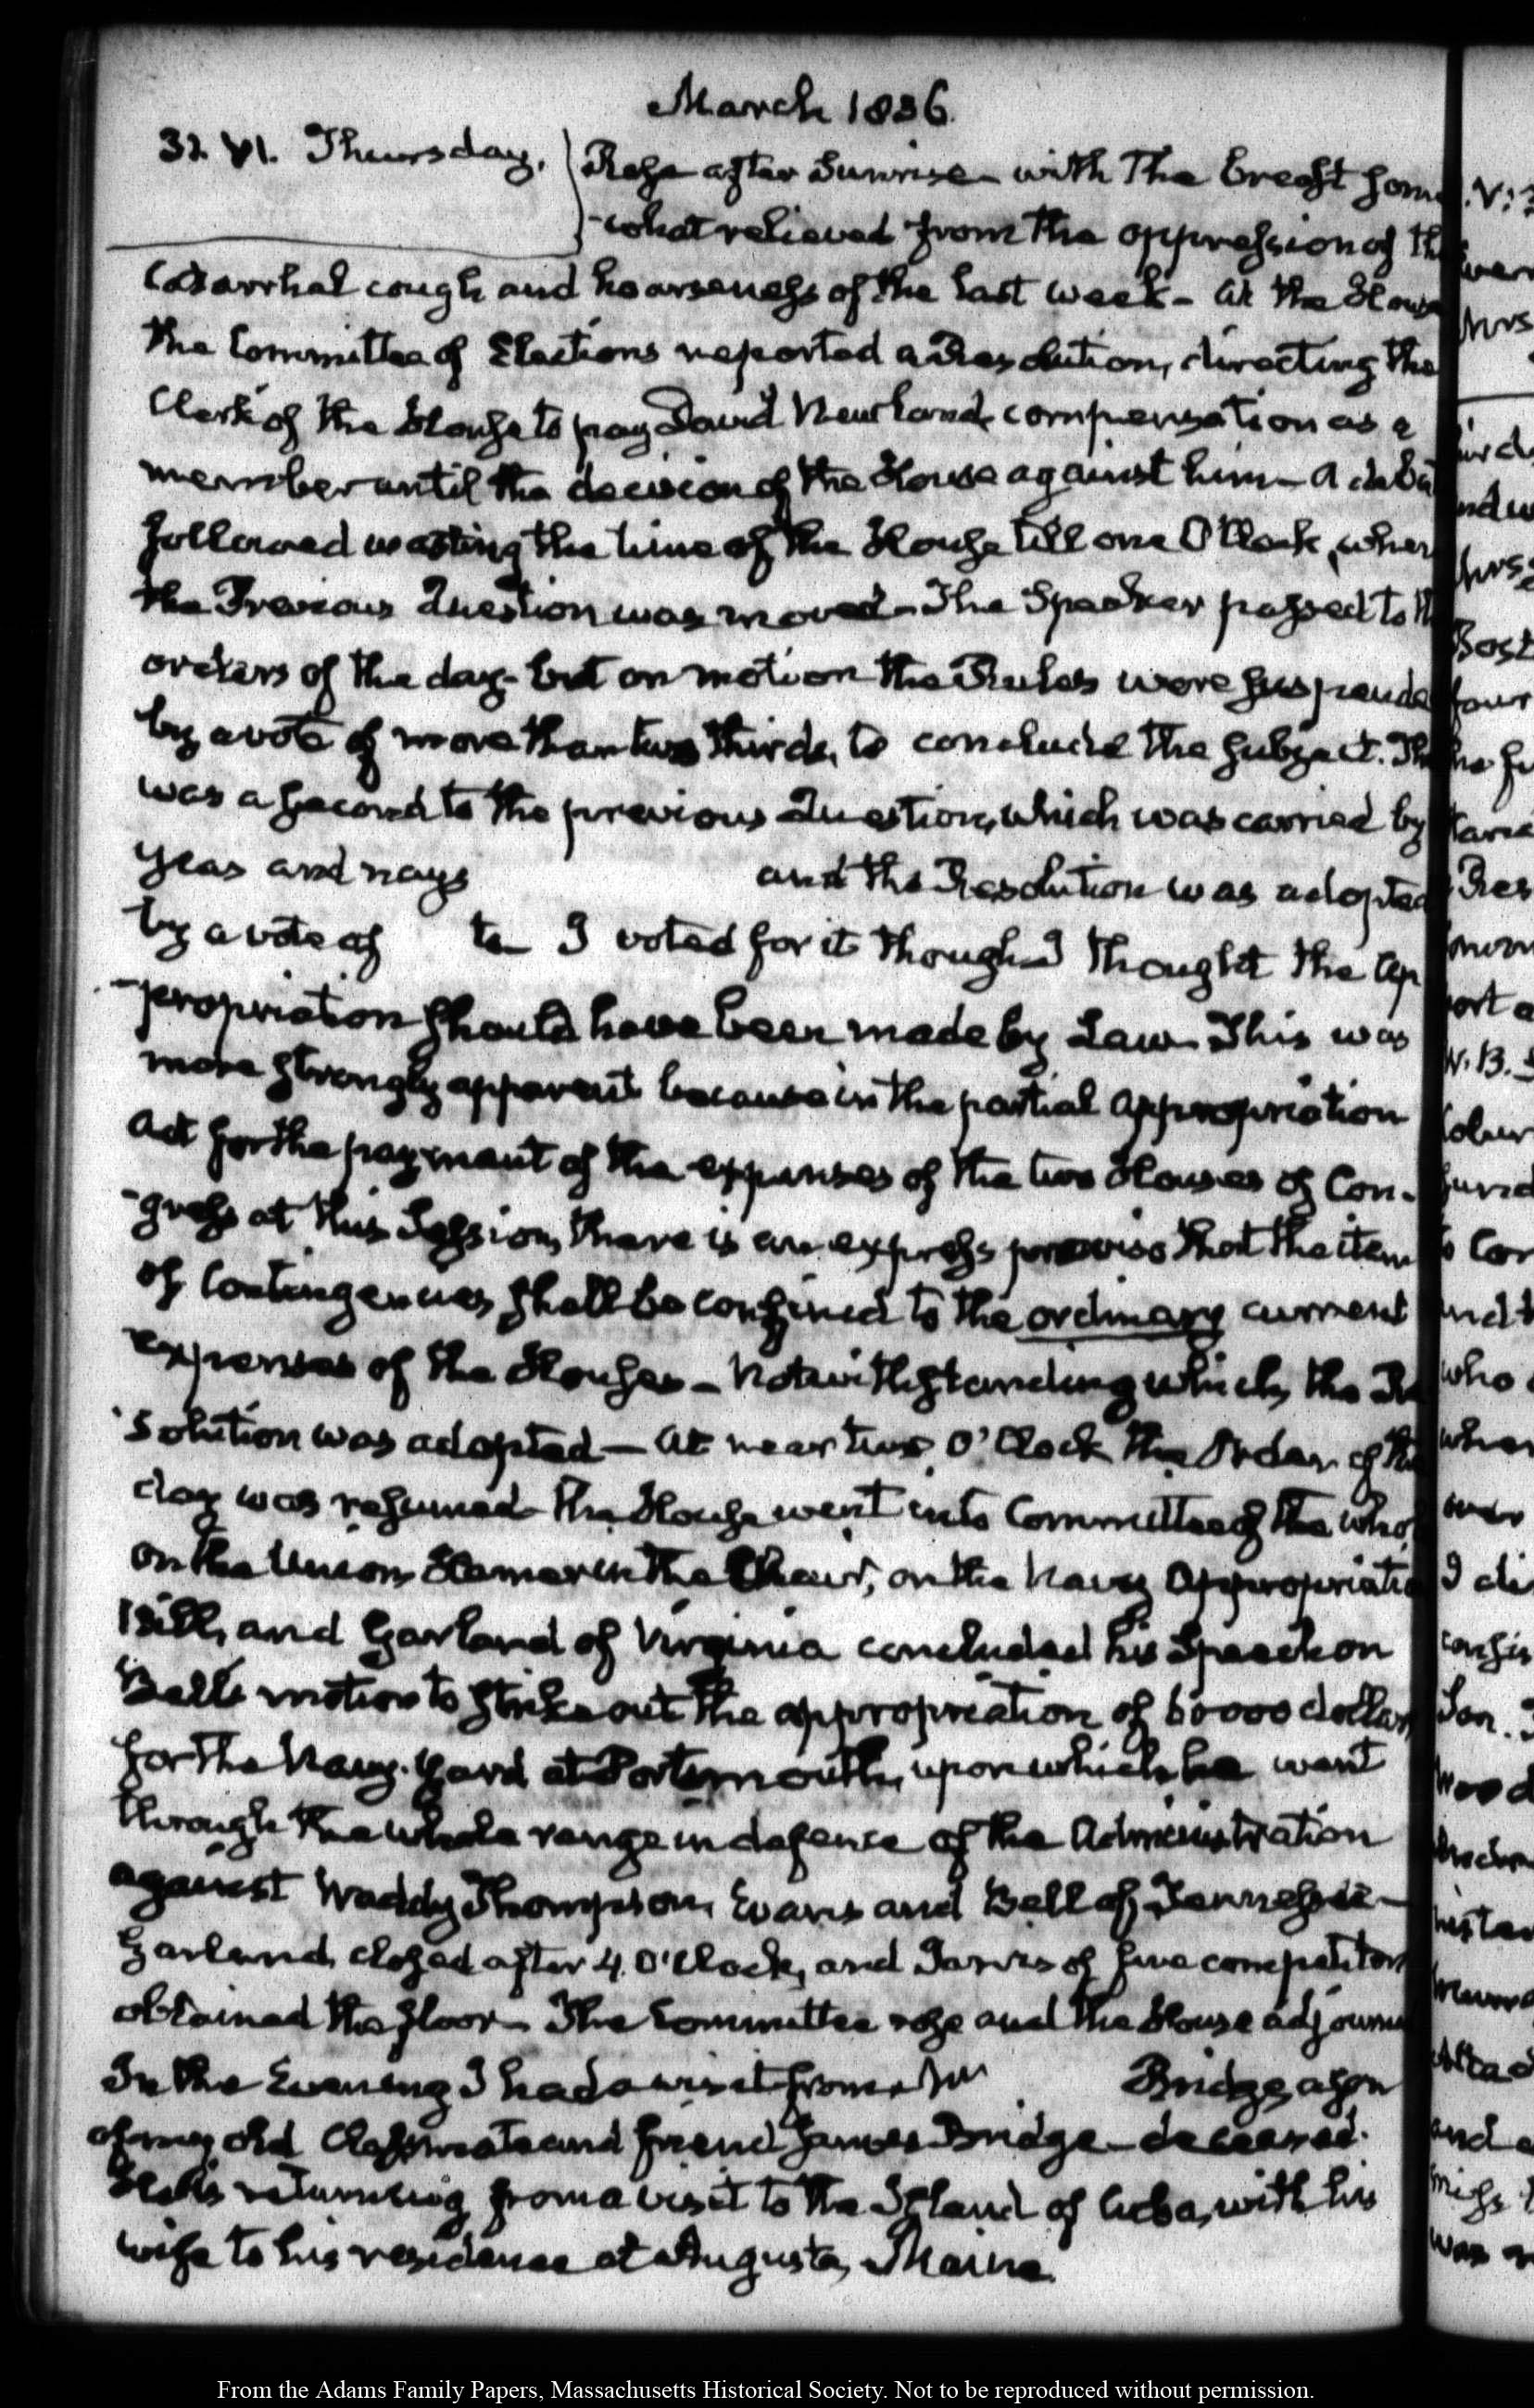 March 1836.
31. VI. Thursday.
Rose after Sunrise with the breast some
-what relieved from the oppression of the
Catarrhal cough and hoarseness of the last week- At the House
the Committee of Elections reported a Resolution, directing the
Clerk of the House to pay David Newland compensation as a
member until the decision of the House against him- A deba
followed wasting the time of the House till one O'Clock, when
the Previous Question was moved- The Speaker passed to th
orders of the day- but on motion the Rules were suspende
by a vote of more than two thirds, to conclude the subject. Th
was a second to the previous Question, which was carried by
yeas and nays and the Resolution was adopted
by a vote of to I voted for it though I thought the ap
-propriation should have been made by Law. This was
more strongly apparent because in the partial appropriation
Act for the payment of the expenses of the two Houses of Con-
-gress at this Session, there is an express proviso that the item
of Contingencies, shall be confined to the ordinary current
expenses of the Houses- Notwithstanding which, the Re
-solution was adopted- At near two O'Clock the Order of the
day was resumed- the House went into Committee of the whol
on the Union, Hamer in the Chair, on the Navy Appropriatio
Bill, and Garland of Virginia concluded his Speech on
Bell's motion to strike out the appropriation of 60000 dollars
for the Navy-Yard at Portsmouth, upon which he went
through the whole range in defence of the Administration
against Waddy Thompson, Evans and Bell of Tennessee-
Garland, closed after 4. O'Clock, and Jarvis of five competitors
obtained the floor- The Committee rose and the House adjourne
In the Evening I had a visit from Mr Bridge, a son
of my old Classmate and friend James Bridge- deceased.
He is returning from a visit to the Island of Cuba, with his
wife to his residence at Augusta, Maine.
From the Adams Family Papers, Massachusetts Historical Society. Not to be reproduced without permission.